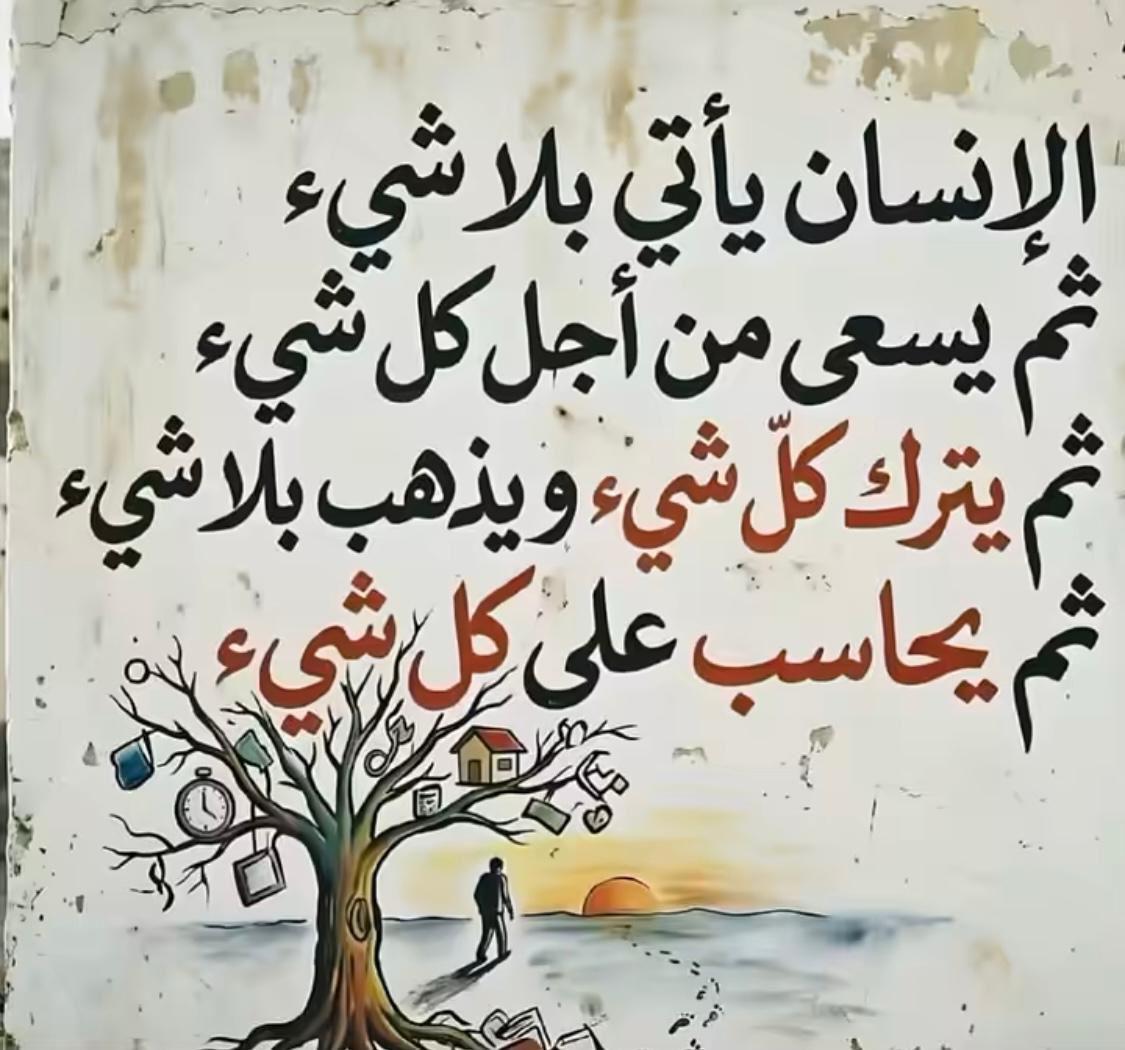 الإنسان يأتي بلا شيء
ثم يسعى من أجل كل شيء
ثم يترك كلّ شيء ويذهب بلا شيء
ثم يحاسب على كل شيء